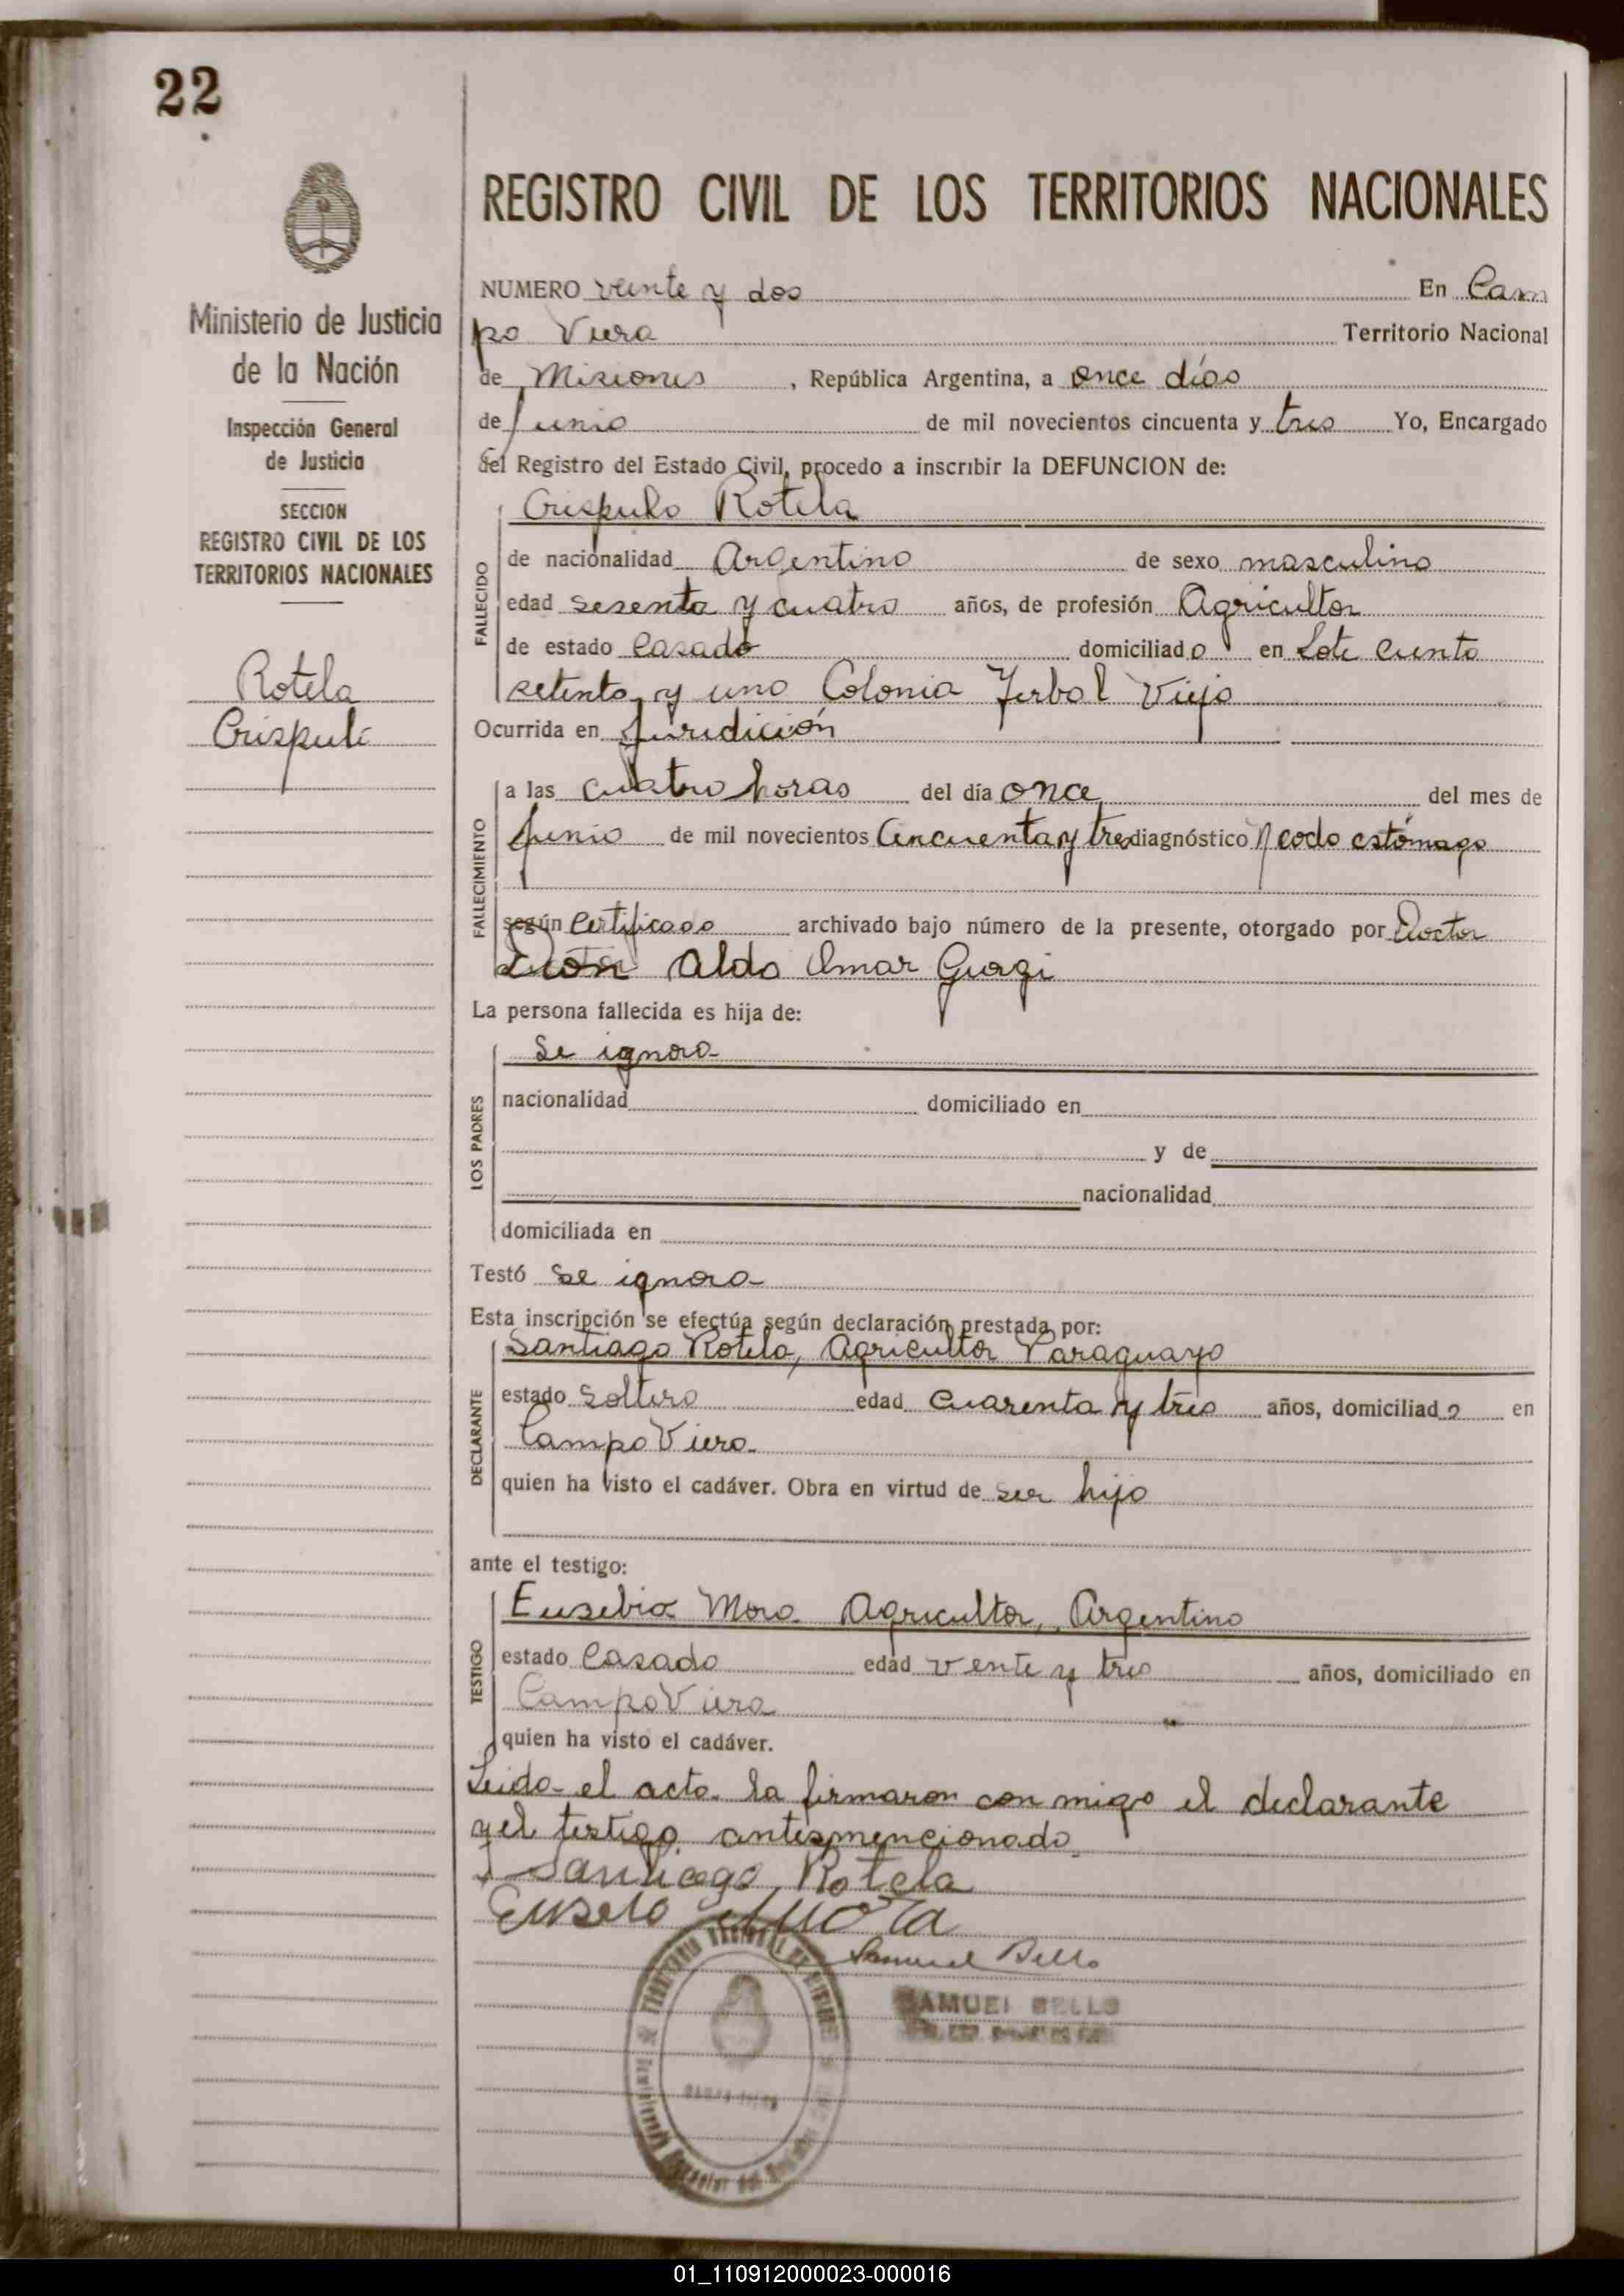 22
Ministerio de Justicia
de la Nación
Inspección General
de Justicia
SECCION
REGISTRO CIVIL DE LOS
TERRITORIOS NACIONALES
Rotela
Crispulo
REGISTRO CIVIL DE LOS TERRITORIOS NACIONALES
NUMERO veinte y dos En Cam
po Viera Territorio Nacional
de Misiones, República Argentina, a once días
de Junio de mil novecientos cincuenta y tres Yo, Encargado
del Registro del Estado Civil, procedo a inscribir la DEFUNCION de:
Crispulo Rotela
FALLECIDO
de nacionalidad Argentino de sexo masculino
edad sesenta y cuatro años, de profesión Agricultor
de estado Casado domiciliado en Lote ciento
setenta y uno Colonia Yerbal Viejo
Ocurrida en Juridición
FALLECIMIENTO
a las cuatro horas del día once del mes de
junio de mil novecientos Cincuenta y tres diagnóstico estómago
según Certificado archivado bajo número de la presente, otorgado por Doctor
Don Aldo Omar
La persona fallecida es hija de:
LOS PADRES
Se ignora
nacionalidad domiciliado en
y de
nacionalidad
domiciliada en
Testó se ignora
Esta inscripción se efectúa según declaración prestada por:
DECLARANTE
Santiago Rotela, Agricultor Paraguayo
estado soltero edad Cuarenta y tres años, domiciliado en
Campo Viera
quien ha visto el cadáver. Obra en virtud de ser hijo
ante el testigo:
TESTIGO
Eusebio Mora Agricultor, Argentino
estado Casado edad vente y tres años, domiciliado en
Campo Viera
quien ha visto el cadáver.
Leida el acta la firmaron con migo el declarante
y el testigo antesmencionado
Santiago Rotela
Samuel Bello
SAMUEL BELLO
01_110912000023-000016